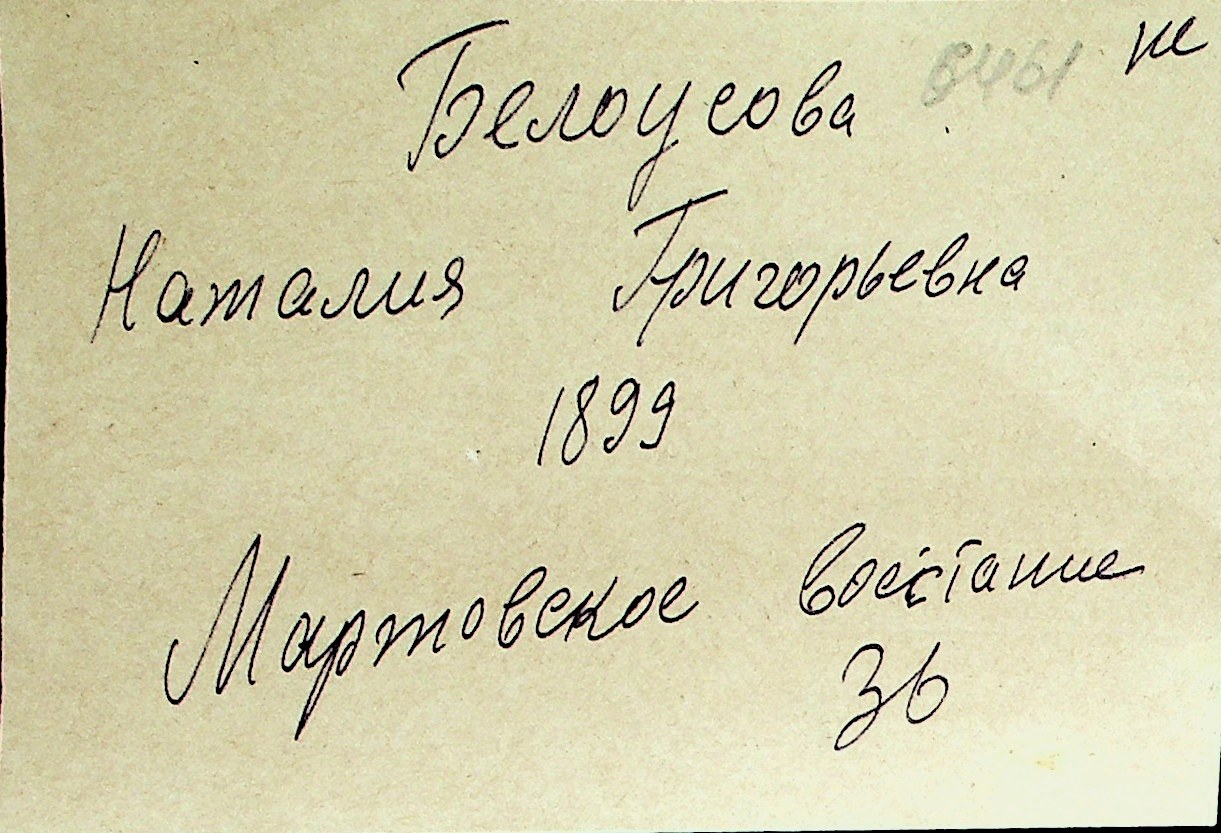 Белоусова
Наталия Григорьевна
1899
Мартовское восстание
36